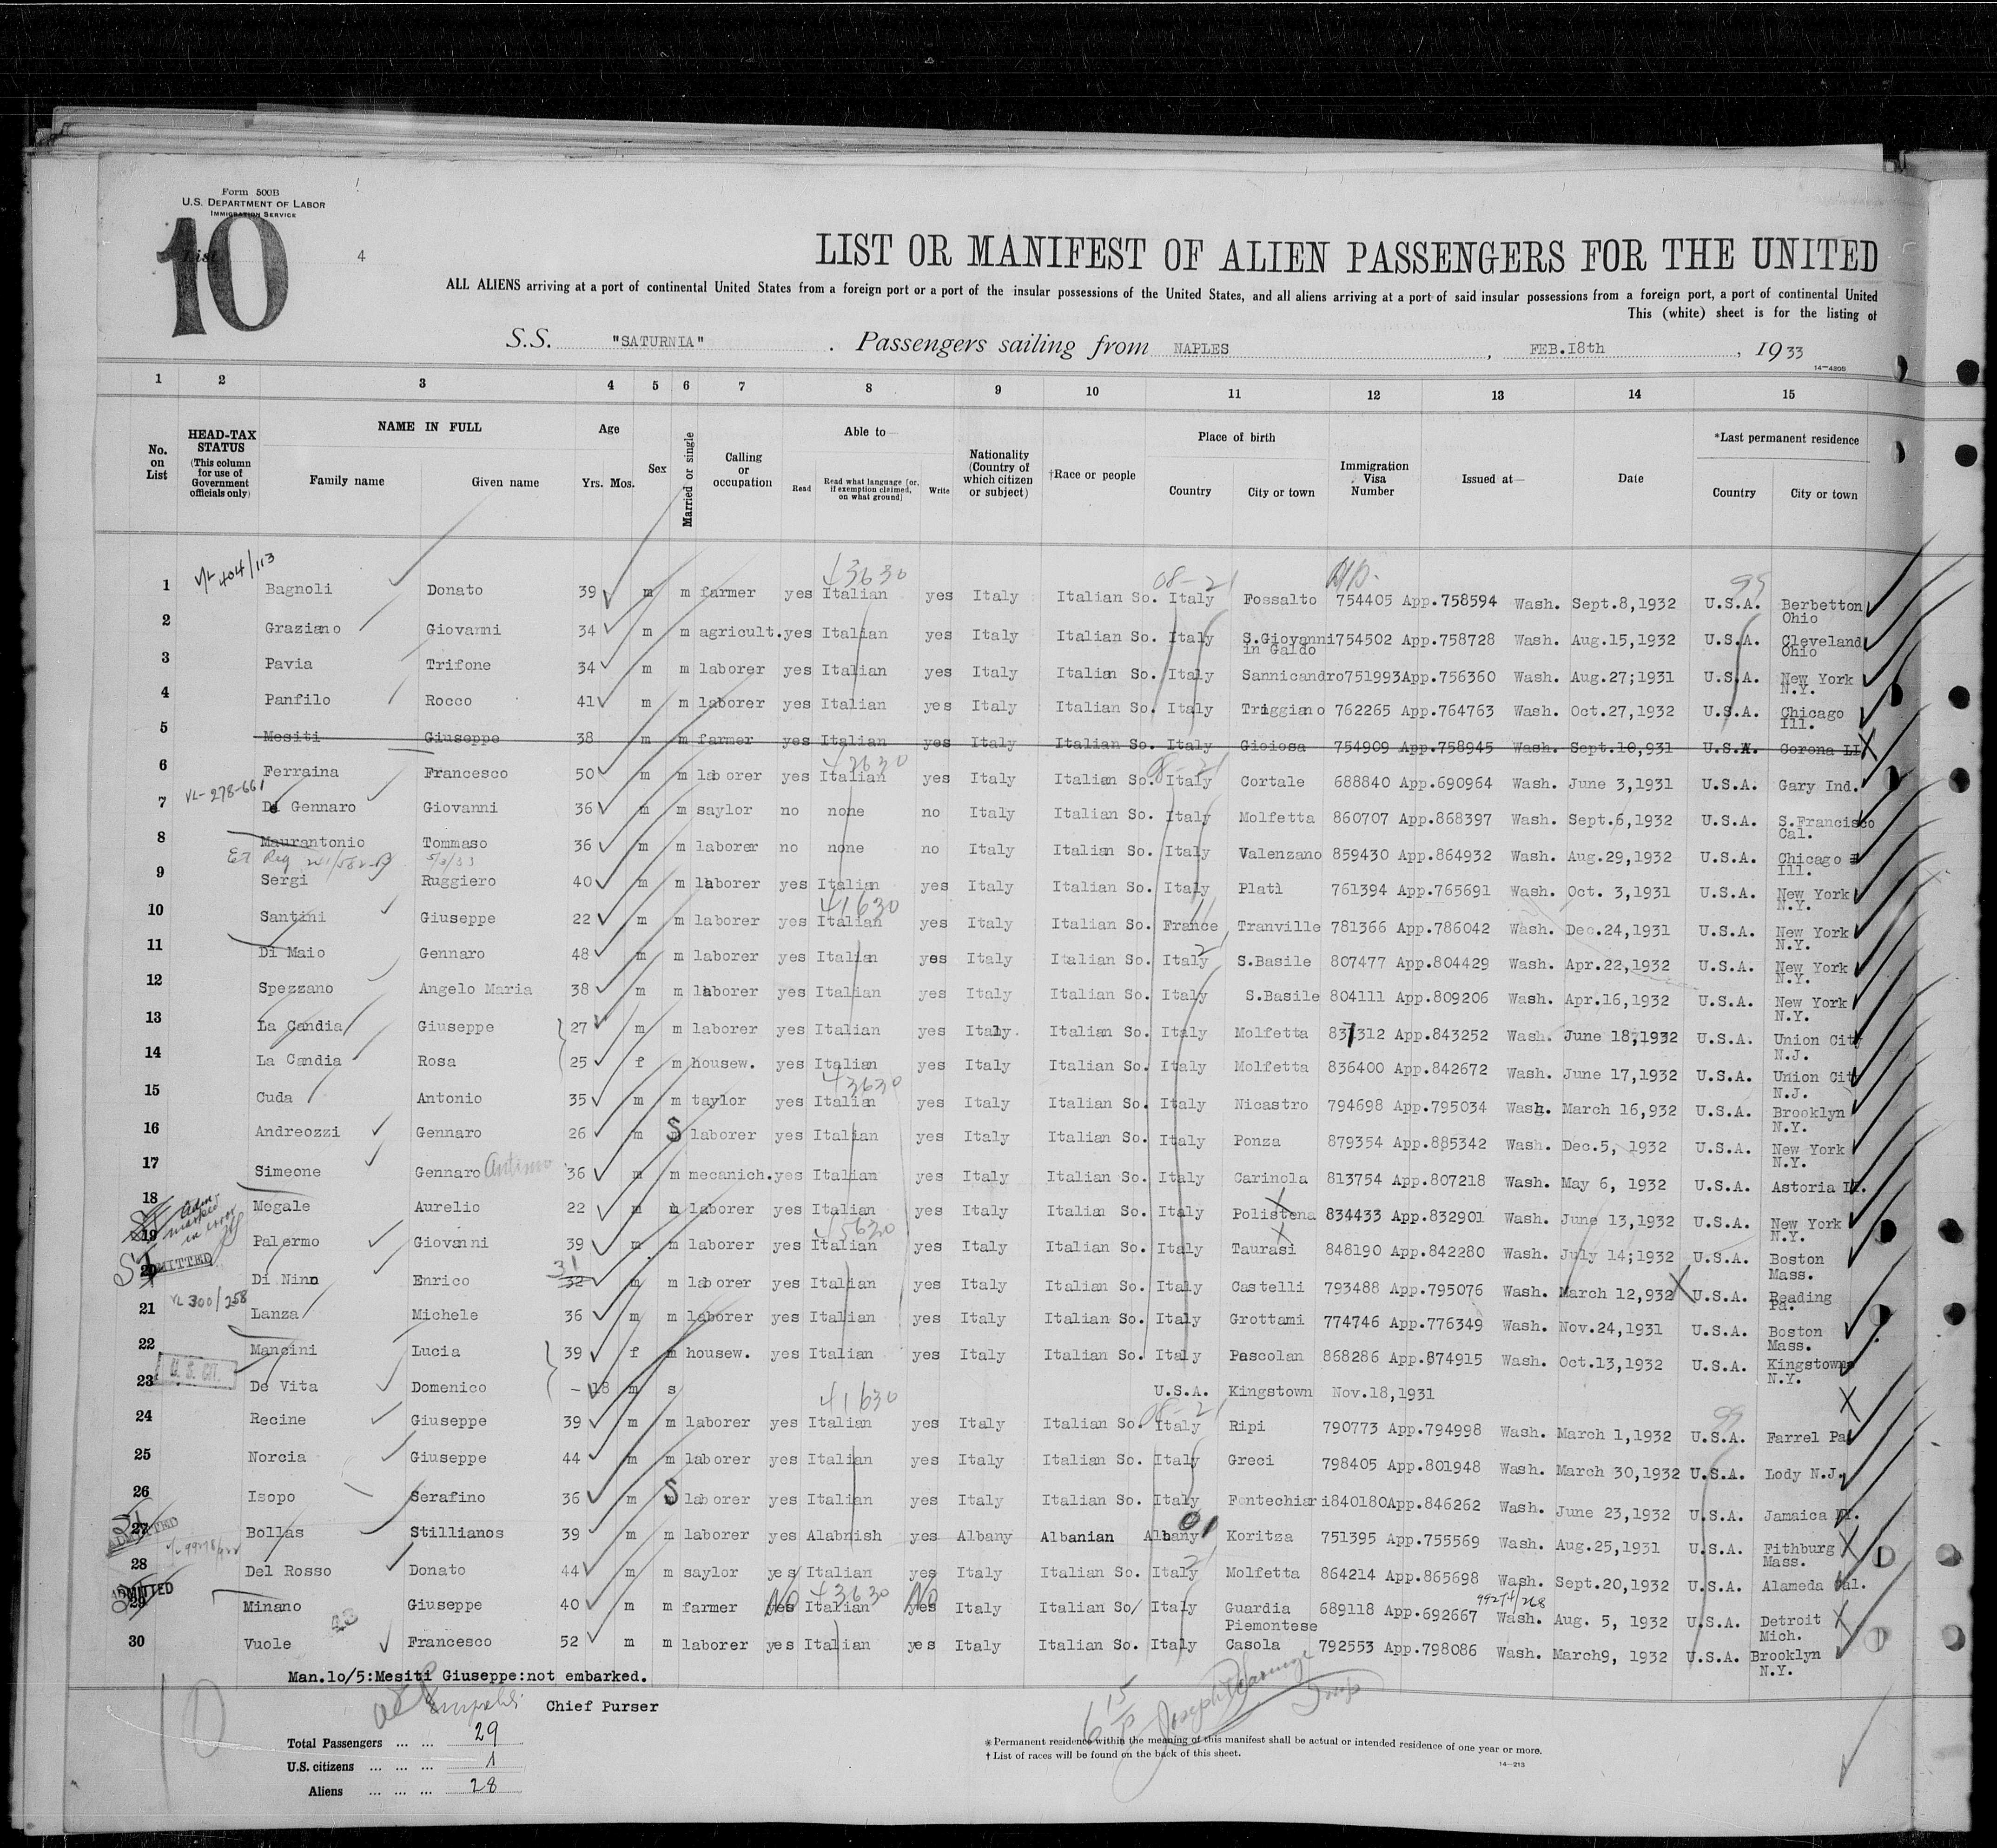 Form 500B
U.S. DEPARTMENT OF LABOR
IMMIGRATION SERVICE
10
List 4
LIST OR MANIFEST OF ALIEN PASSENGERS FOR THE UNITED
ALL ALIENS arriving at a port of continental United States from a foreign port or a port of the insular possessions of the United States, and all aliens arriving at a port of said insular possessions from a foreign port, a port of continental United
This (white) sheet is for the listing of
S.S. "SATURNIA". Passengers sailing from NAPLES, FEB.18th, 1933
14-4205
1 2 3 4 5 6 7 8 9 10 11 12 13 14 15
No. on List
HEAD-TAX STATUS (This column for use of Government officials only)
NAME IN FULL Family name Given name
Age Yrs. Mos.
Sex
Married or single
Calling or occupation
Able to— Read Read what language [or, if exemption claimed, on what ground] Write
Nationality (Country of which citizen or subject)
†Race or people
Place of birth Country City or town
Immigration Visa Number
Issued at—
Date
*Last permanent residence Country City or town
VL 404/113 43630 08-21 99
1 Bagnoli Donato 39 m m farmer yes Italian yes Italy Italian So. Italy Fossalto 754405 App.758594 Wash. Sept.8,1932 U.S.A. Berbetton Ohio
2 Graziano Giovanni 34 m m agricult. yes Italian yes Italy Italian So. Italy S.Giovanni in Galdo 754502 App.758728 Wash. Aug.15,1932 U.S.A. Cleveland Ohio
3 Pavia Trifone 34 m m laborer yes Italian yes Italy Italian So. Italy Sannicandro 751993 App.756360 Wash. Aug.27;1931 U.S.A. New York N.Y.
4 Panfilo Rocco 41 m m laborer yes Italian yes Italy Italian So. Italy Triggiano 762265 App.764763 Wash. Oct.27,1932 U.S.A. Chicago Ill.
5 Mesiti Giuseppe 38 m m farmer yes Italian yes Italy Italian So. Italy Gioiosa 754909 App.758945 Wash. Sept.10,931 U.S.A. Corona LI X
6 Ferraina Francesco 50 m m laborer yes Italian yes Italy Italian So. Italy Cortale 688840 App.690964 Wash. June 3,1931 U.S.A. Gary Ind.
VL-278-661
7 De Gennaro Giovanni 36 m m saylor no none no Italy Italian So. Italy Molfetta 860707 App.868397 Wash. Sept.6,1932 U.S.A. S.Francisco Cal.
8 Maurantonio Tommaso 36 m m laborer no none no Italy Italian So. Italy Valenzano 859430 App.864932 Wash. Aug.29,1932 U.S.A. Chicago Ill.
9 Sergi Ruggiero 40 m m laborer yes Italian yes Italy Italian So. Italy Platì 761394 App.765691 Wash. Oct. 3,1931 U.S.A. New York N.Y.
41630
10 Santini Giuseppe 22 m m laborer yes Italian yes Italy Italian So. France Tranville 781366 App.786042 Wash. Dec.24,1931 U.S.A. New York N.Y.
11 Di Maio Gennaro 48 m m laborer yes Italian yes Italy Italian So. Italy S.Basile 807477 App.804429 Wash. Apr.22,1932 U.S.A. New York N.Y.
12 Spezzano Angelo Maria 38 m m laborer yes Italian yes Italy Italian So. Italy S.Basile 804111 App.809206 Wash. Apr.16,1932 U.S.A. New York N.Y.
13 La Candia Giuseppe 27 m m laborer yes Italian yes Italy. Italian So. Italy Molfetta 837312 App.843252 Wash. June 18,1932 U.S.A. Union City N.J.
14 La Candia Rosa 25 f m housew. yes Italian yes Italy Italian So. Italy Molfetta 836400 App.842672 Wash. June 17,1932 U.S.A. Union City N.J.
43630
15 Cuda Antonio 35 m m taylor yes Italian yes Italy Italian So. Italy Nicastro 794698 App.795034 Wash. March 16,932 U.S.A. Brooklyn N.Y.
16 Andreozzi Gennaro 26 m S laborer yes Italian yes Italy Italian So. Italy Ponza 879354 App.885342 Wash. Dec.5, 1932 U.S.A. New York N.Y.
17 Simeone Gennaro Antimo 36 m m mecanich. yes Italian yes Italy Italian So. Italy Carinola 813754 App.807218 Wash. May 6, 1932 U.S.A. Astoria LI.
18 Megale Aurelio 22 m m laborer yes Italian yes Italy Italian So. Italy Polistena 834433 App.832901 Wash. June 13,1932 U.S.A. New York N.Y.
Adm. marked in error
19 Palermo Giovanni 39 m m laborer yes Italian yes Italy Italian So. Italy Taurasi 848190 App.842280 Wash. July 14;1932 U.S.A. Boston Mass.
ADMITTED
20 Di Nino Enrico 32 31 m m laborer yes Italian yes Italy Italian So. Italy Castelli 793488 App.795076 Wash. March 12,932 X U.S.A. Reading Pa.
VL 300/258
21 Lanza Michele 36 m m laborer yes Italian yes Italy Italian So. Italy Grottami 774746 App.776349 Wash. Nov.24,1931 U.S.A. Boston Mass.
22 Mancini Lucia 39 f m housew. yes Italian yes Italy Italian So. Italy Pescolan 868286 App.874915 Wash. Oct.13,1932 U.S.A. Kingstown N.Y.
U.S. CIT.
23 De Vita Domenico – 18 m s U.S.A. Kingstown Nov.18,1931 X
41630
24 Recine Giuseppe 39 m m laborer yes Italian yes Italy Italian So. Italy Ripi 790773 App.794998 Wash. March 1,1932 U.S.A. Farrel Pa
25 Norcia Giuseppe 44 m m laborer yes Italian yes Italy Italian So. Italy Greci 798405 App.801948 Wash. March 30,1932 U.S.A. Lody N.J.
26 Isopo Serafino 36 m S laborer yes Italian yes Italy Italian So. Italy Fontechiari 840180 App.846262 Wash. June 23,1932 U.S.A. Jamaica LI.
ADMITTED
27 Bollas Stillianos 39 m m laborer yes Alabnish yes Albany Albanian Albany Koritza 751395 App.755569 Wash. Aug.25,1931 U.S.A. Fithburg Mass. X
28 Del Rosso Donato 44 m m saylor yes Italian yes Italy Italian So. Italy Molfetta 864214 App.865698 Wash. Sept.20,1932 U.S.A. Alameda Cal.
ADMITTED NO 43630 NO 99274/268
29 Minano Giuseppe 40 m m farmer yes Italian yes Italy Italian So/ Italy Guardia Piemontese 689118 App.692667 Wash. Aug. 5, 1932 U.S.A. Detroit Mich. X
30 Vuole Francesco 52 m m laborer yes Italian yes Italy Italian So. Italy Casola 792553 App.798086 Wash. March9, 1932 U.S.A. Brooklyn N.Y.
Man.1o/5:Mesiti Giuseppe:not embarked.
Chief Purser
Total Passengers ... ... 29
U.S. citizens ... ... ... 1
Aliens ... ... ... 28
* Permanent residence within the meaning of this manifest shall be actual or intended residence of one year or more.
† List of races will be found on the back of this sheet.
14-213